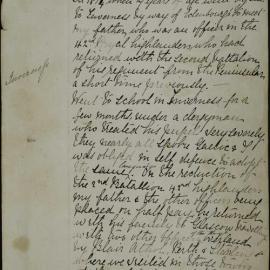 In 1812, when 7 years of age went by sea
to Inverness by way of Edinburgh to meet
my father, who was an officer in the
42nd Royal highlanders who had
returned with the second Battalion
of his regiment from the Peninsular
a short time previously.
Inverness
Went to school in Inverness for a
few months under a clergyman
who treated his pupils very severely
They nearly all spoke Gaelic & I
was obliged in self defence to adopt
the same. On the reduction of
the 2nd Battalion 42nd highlanders
my father & the other officers being
placed on half pay, he returned
with his family to Glasgow
with two other officers
by Blair Athol, Perth & Stirling
where we rested in